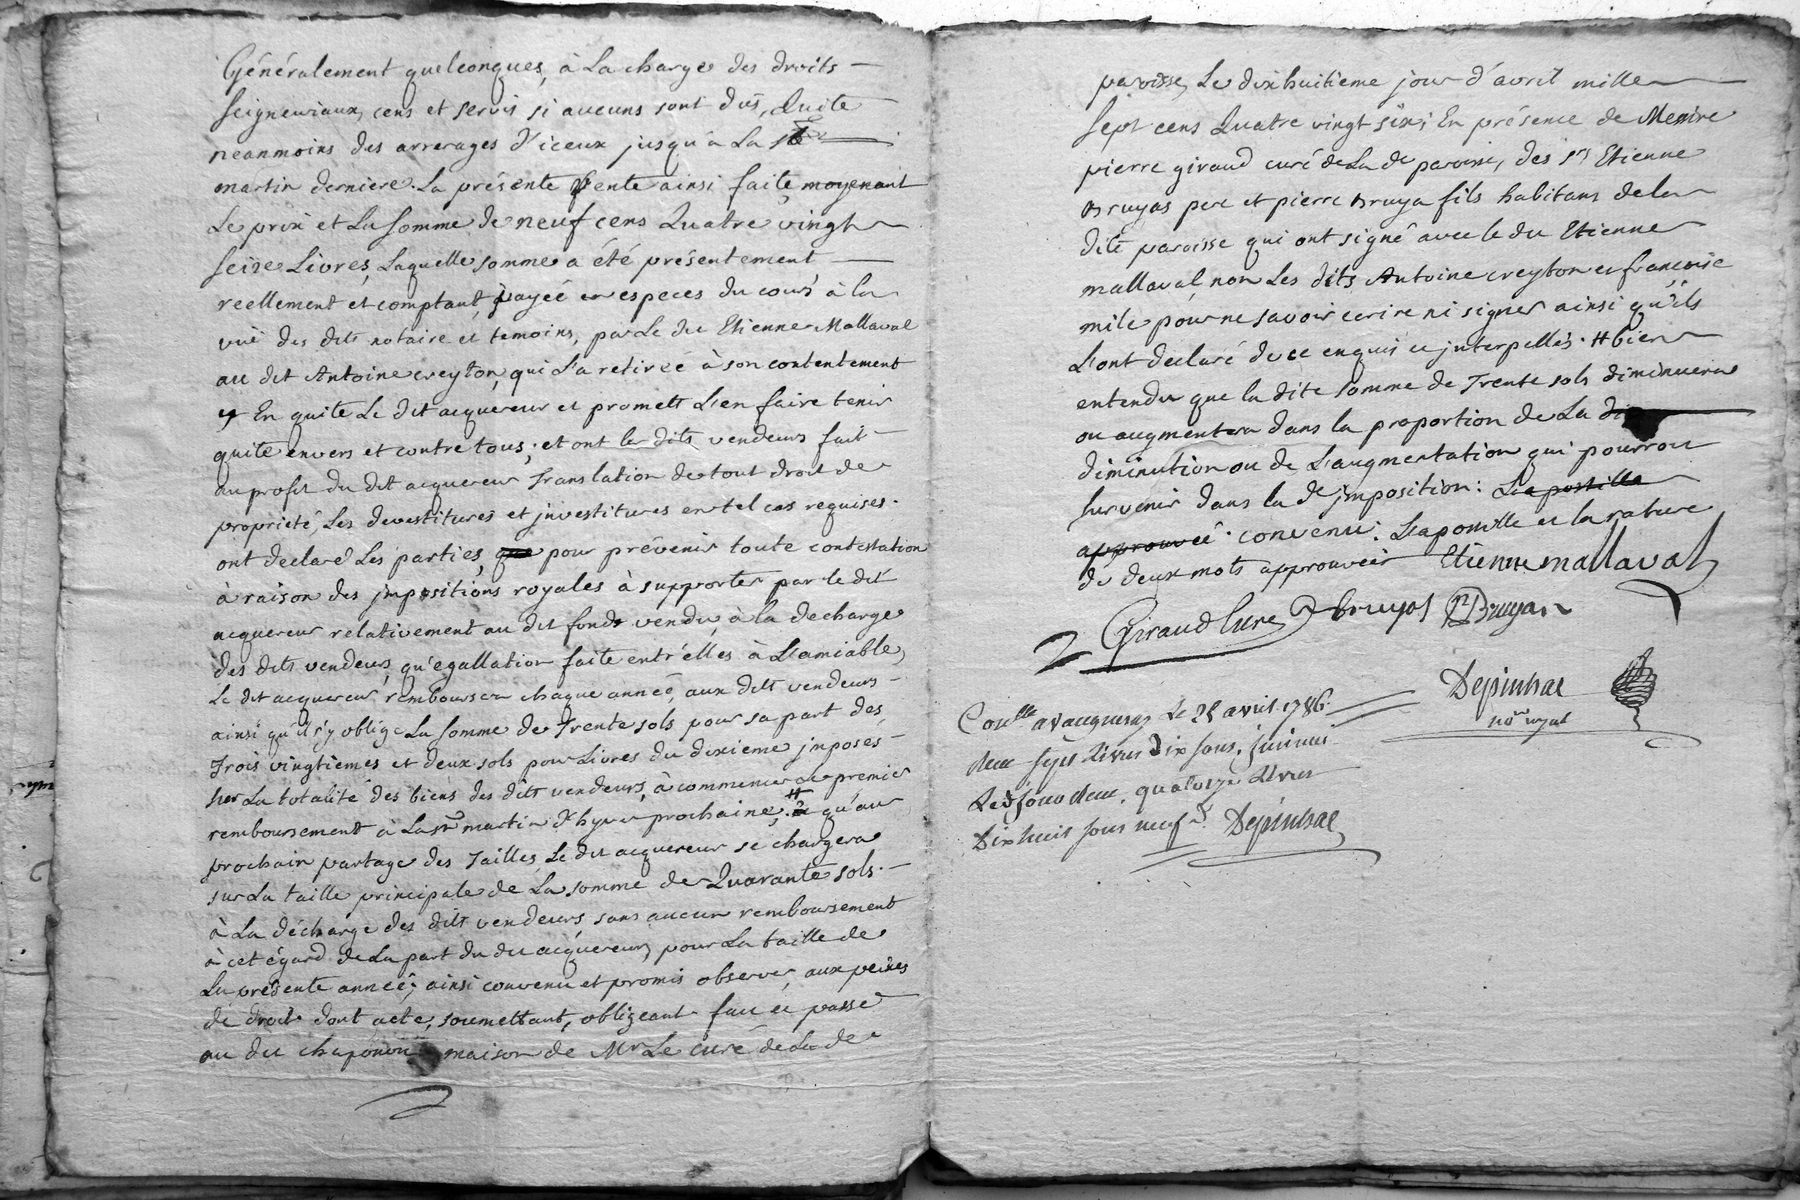 Généralement quelconques, à La charge des droits
seigneuriaux, cens et servis si aucuns sont dus, quite
neanmoins des arrerages d'iceux jusqu'à La Ste
martin derniere. La présente vente ainsi faite moyenant
Le prix et La somme de neuf cens Quatre vingt
seize Livres, Laquelle somme a été présentement
reellement et comptant payée en especes du cours à la
vuë des dits notaire et temoins, par Le dit Etienne Mallaval
au dit Antoine creyton, qui L'a retirée à son contentement
En quite Le dit acquereur et promett L'en faire tenir
quite envers et contre tous; et ont les dits vendeurs fait
au profit du dit acquereur translation de tout droit de
proprieté, Les devestitures et investitures en tel cas requises.
ont declaré Les parties, que pour prévenir toute contestation
à raison des jmpositions royales à supporter par le dit
acquereur relativement au dit fonds vendu, à la decharge
des dits vendeurs, qu'egallation faite entr'elles à L'amiable,
Le dit acquereur remboursera chaque année, aux dits vendeurs
ainsi qu'il s'y oblige La somme de Trente sols pour sa part des
Trois vingtiemes et deux sols pour Livres du dixieme jmposés
sur La totalité des biens des dits vendeurs, à commencer le premier
remboursement à La St martin d'hyver prochaine, # & qu'au
prochain partage des Tailles, Le dit acquereur se chargera
sur La taille principale de La somme de Quarante sols.
à La décharge des dits vendeurs sans aucun remboursement
à cet égard de La part du dit acquereur, pour La taille de
La présente année; ainsi convenu et promis observer, aux peines
de droit dont acte, soumettant, obligeant fait et passé
au dit chaponou maison de Mr Le curé de La de
paroisse, Le dix huitieme jour d'avril mille
sept cens Quatre vingt six; En présence de Messire
pierre giraud curé de La de paroisse, des srs Etienne
Bruyas pere et pierre Bruya fils habitans de la
dite paroisse qui ont signé avec le dit Etienne
mallaval, non Les dits Antoine creyton et françoise
mile pour ne savoir ecrire ni signer ainsi qu'ils
L'ont declaré de ce enquis et jnterpellés. # bien
entendu que la dite somme de Trente sols diminuera
ou augmentera dans la proportion de La di
diminution ou de L'augmentation qui pourroit
survenir dans la de jmposition: La postille
approuvée. convenu: L'apostille et la rature
de deux mots approuvéés Etienne mallaval
Giraud Cure Bruyas P Bruyas
Depinhac
nore royal
Coulle avaugneray Le 28 avril 1786
deux sept Livres Dix sous,
Led jour deux, quatorze Livres
Dix huit sous neuf d. Depinhac